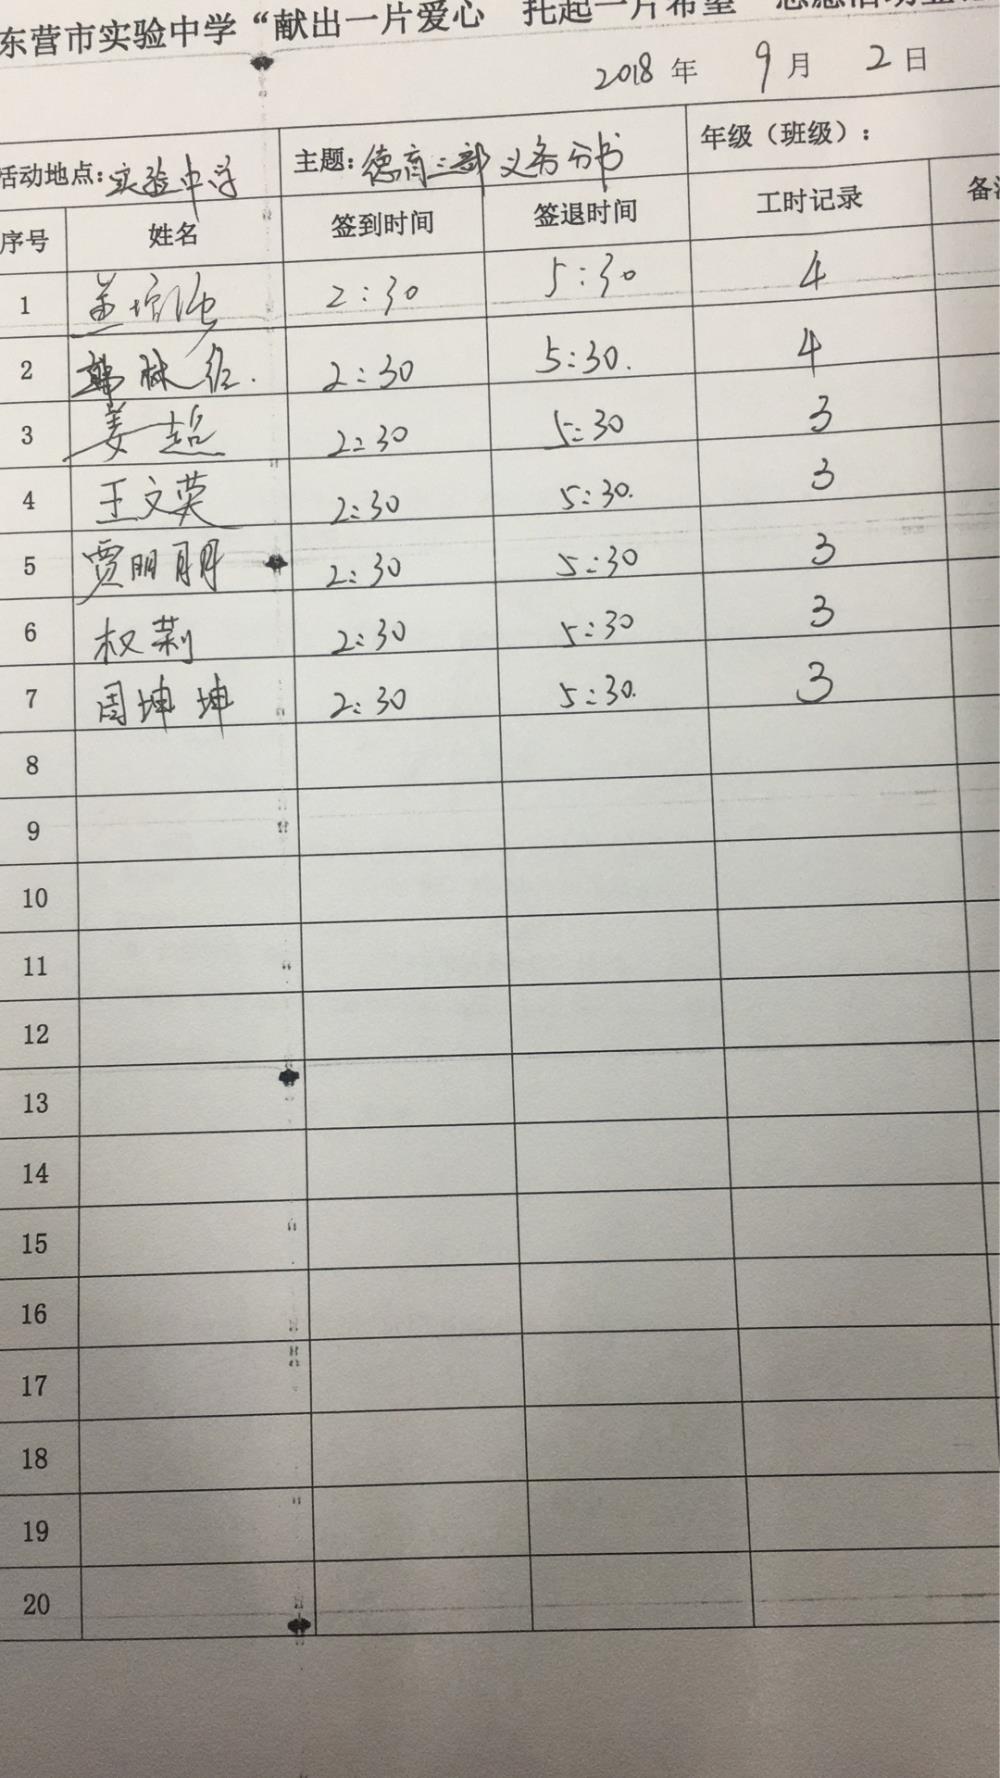 东营市实验中学“献出一片爱心 托起一片希望
2018年 9月 2日
活动地点:实验中学 主题:德育三部义务分书 年级（班级）:
序号 姓名 签到时间 签退时间 工时记录 备注
1 2:30 5:30 4
2 韩 2:30 5:30. 4
3 姜超 2:30 5:30 3
4 王文英 2:30 5:30. 3
5 贾朋朋 2:30 5:30 3
6 权莉 2:30 5:30 3
7 周坤坤 2:30 5:30. 3
8
9
10
11
12
13
14
15
16
17
18
19
20